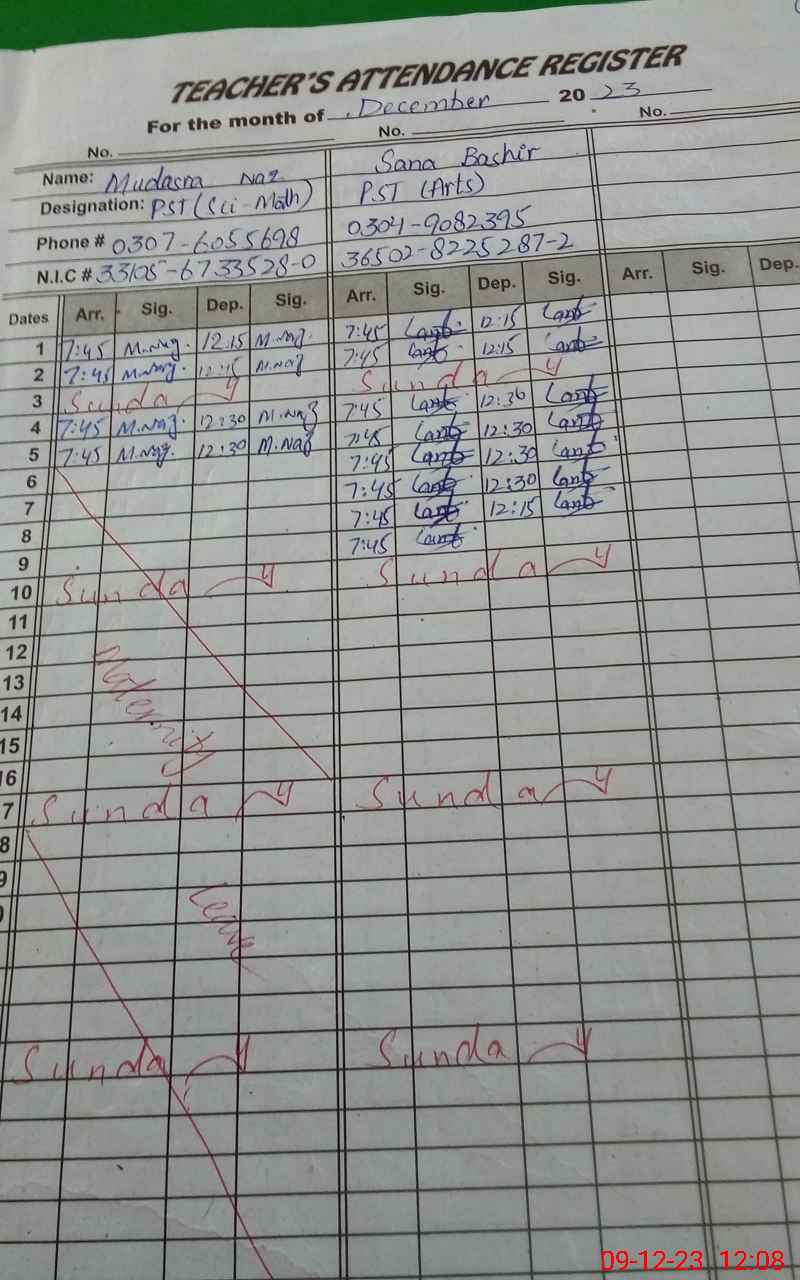 TEACHER'S ATTENDANCE REGISTER
For the month of December 20 23
No. No. No.
Name: Mudasra Naz Sana Bashir
Designation: PST (Sci-Math) PST (Arts)
Phone # 0307-6055698 0304-9082395
N.I.C # 33105-6733528-0 36502-8225287-2
Dates Arr. Sig. Dep. Sig. Arr. Sig. Dep. Sig. Arr. Sig. Dep.
1 7:45 M.Naz. 12:15 M.Naz. 7:45 12:15
2 7:45 M.Naz. 12:15 M.Naz 7:45 12:15
3 Sunday Sunday
4 7:45 M.Naz. 12:30 M.Naz 7:45 12:30
5 7:45 M.Naz. 12:30 M.Naz 7:45 12:30
6 7:45 12:30
7 7:45 12:30
8 7:45 12:15
9 7:45
10 Sunday Sunday
11
12
13
14
15
16
Maternity
7 Sunday Sunday
8
9
Leave
Sunday Sunday
09-12-23 12:08